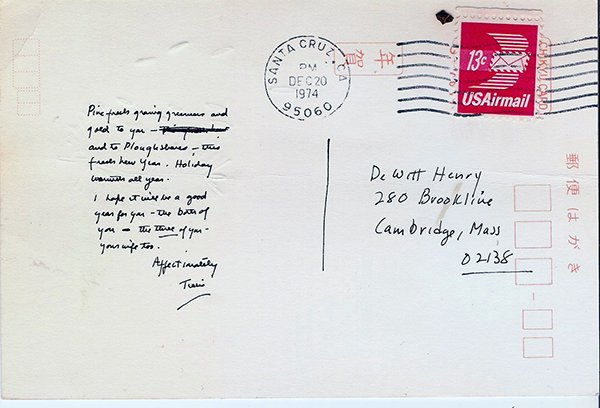 SANTA CRUZ, CA
PM
DEC 20
1974
95060
年賀
13c
USAirmail
郵便はがき
Pine freets graving greenness and
gold to you —
and to Ploughshares — this
fresh New Year. Holiday
warmths all year.
I hope it will be a good
year for you — the both of
you — the three of you —
your wife too.
Affectionately
DeWitt Henry
280 Brookline
Cambridge, Mass
02138